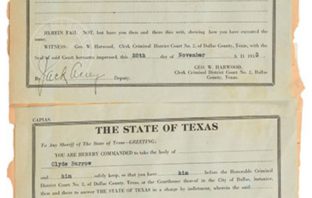 HEREIN FAIL NOT, but have you then and there this writ, showing how you have executed the same.
WITNESS: Geo. W. Harwood, Clerk Criminal District Court No. 2, of Dallas County, Texas, with the
Seal of said Court hereunto impressed, this 28th day of November A. D. 19
GEO. W. HARWOOD,
Clerk, Criminal District Court No. 2, Dallas
County, Texas.
By Deputy.
CAPIAS
THE STATE OF TEXAS
To Any Sheriff of The State of Texas—GREETING:
YOU ARE HEREBY COMMANDED to take the body of
Clyde Barrow
and him safely keep, so that you have him before the Honorable Criminal
District Court No. 2, of Dallas County, Texas, at the Courthouse thereof in the City of Dallas, instanter,
then and there to answer THE STATE OF TEXAS in a charge by indictment, wherein the said